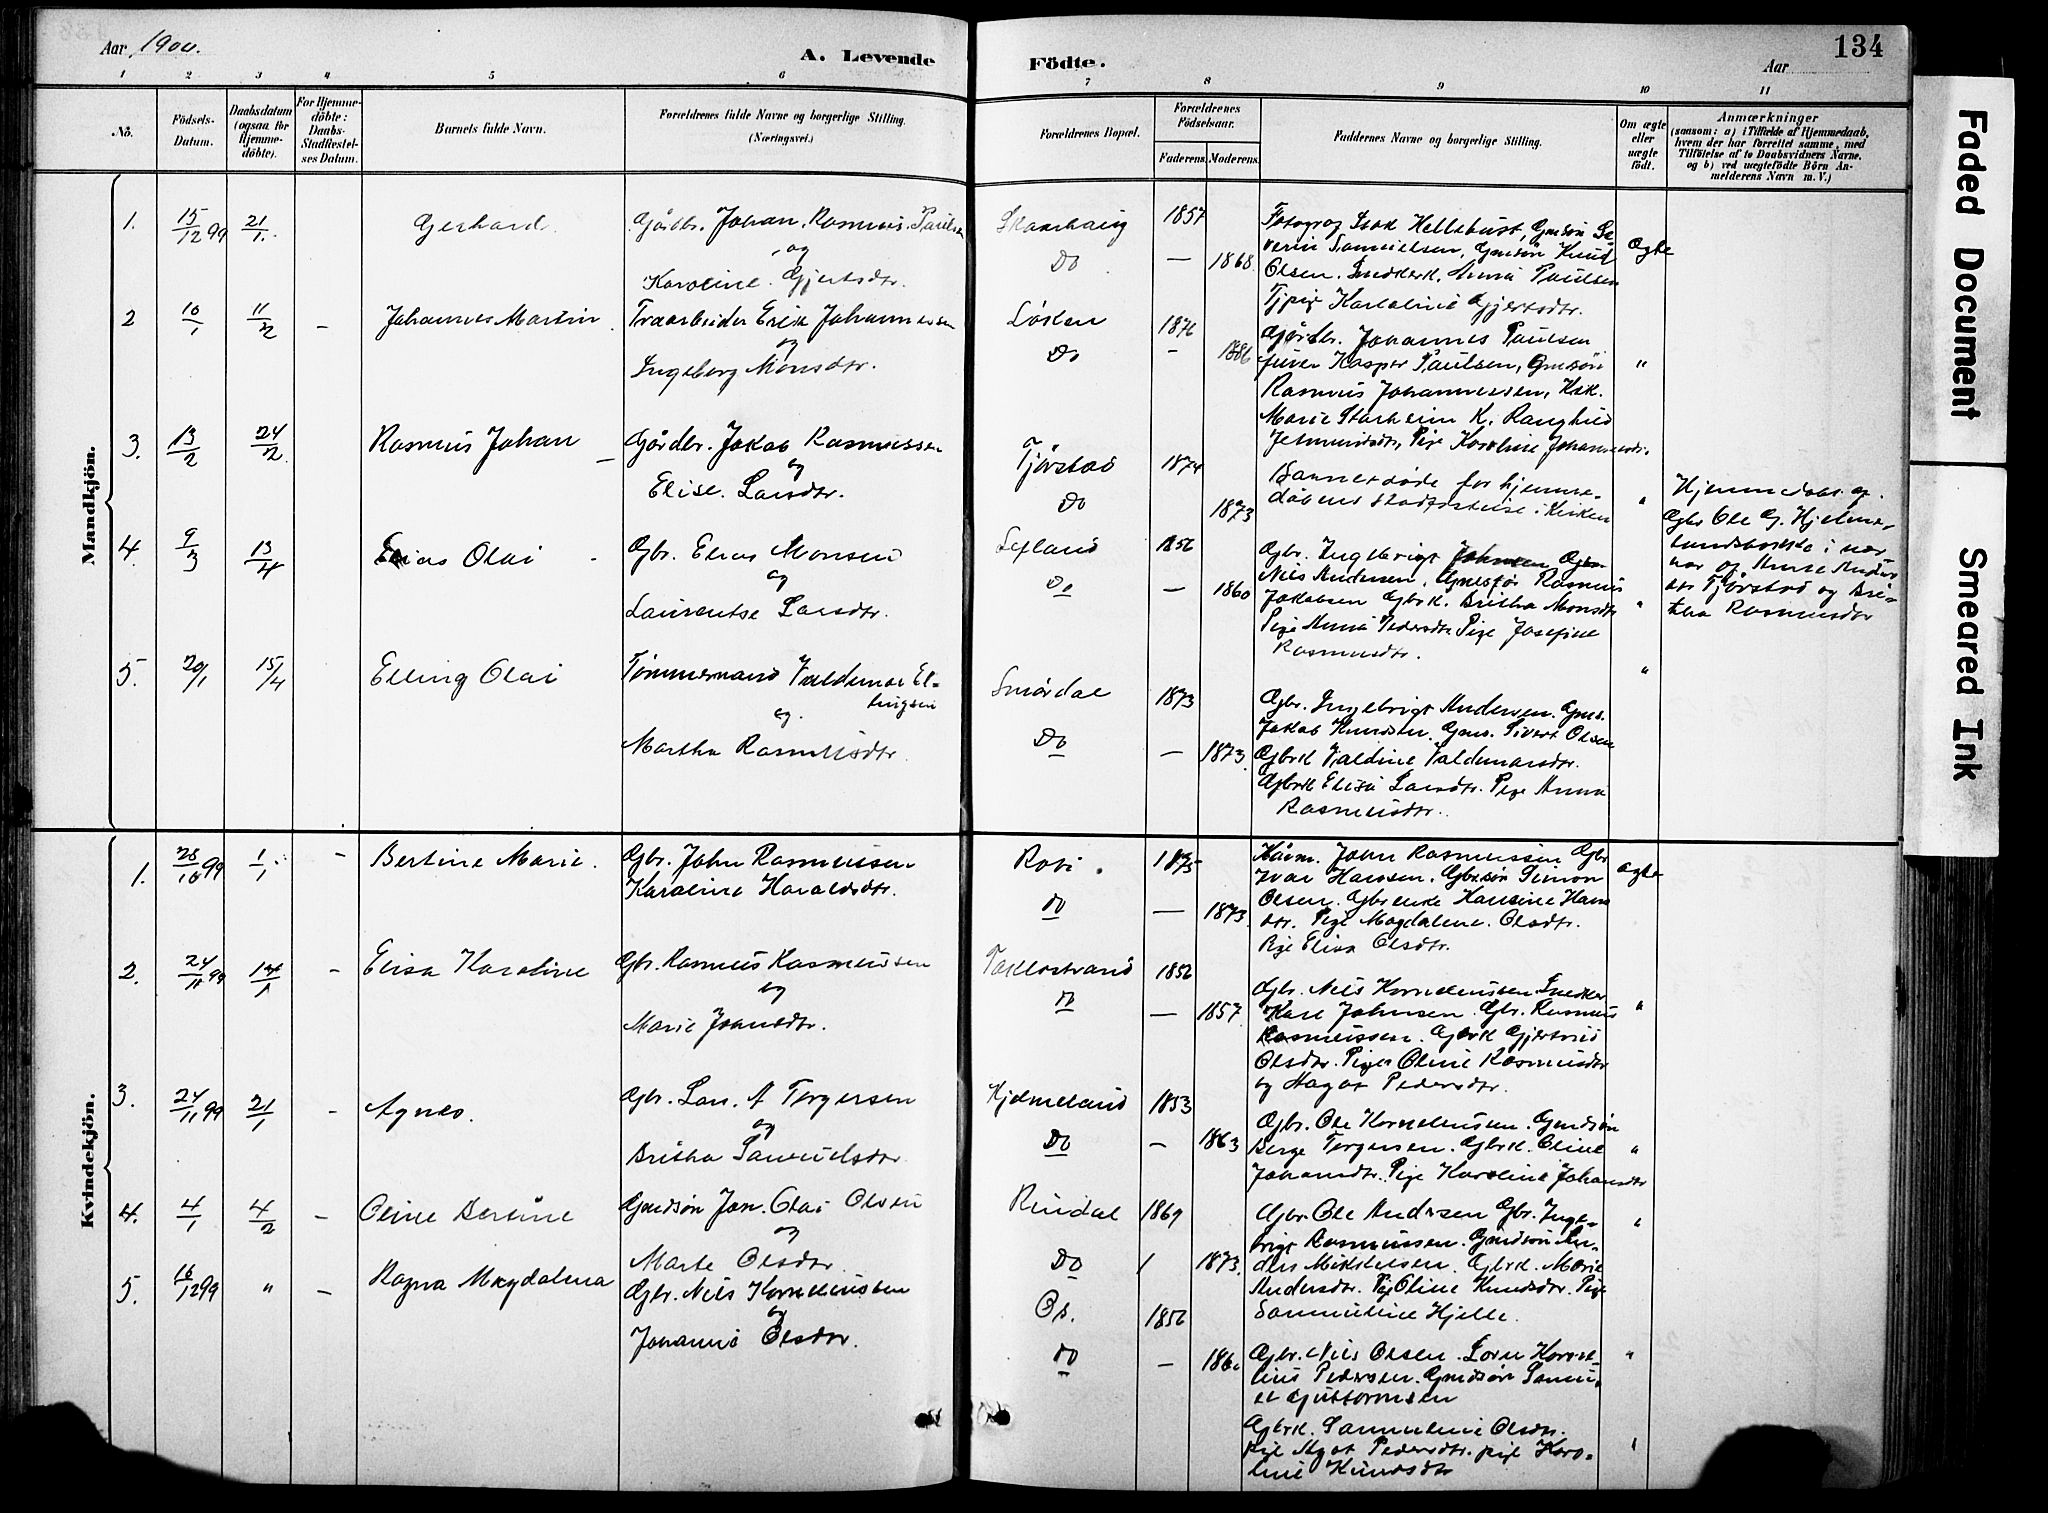 Aar 1900.
A. Levende
Födte.
Aar
134
1 2 3 4 5 6 7 8 9 10 11
No.
Födsels-
Datum.
Daabsdatum
(ogsaa for
Hjemme-
döbte).
For Hjemme-
döbte:
Daabs-
Stadfæstel-
ses Datum.
Barnets fulde Navn.
Forældrenes fulde Navne og borgerlige Stilling.
(Næringsvei.)
Forældrenes Bopæl.
Forældrenes
Födselsaar.
Faderens. Moderens.
Faddernes Navne og borgerlige Stilling.
Om ægte
eller
uægte
födt.
Anmærkninger
(saasom: a) i Tilfælde af Hjemmedaab,
hvem der har forrettet samme, med
Tilföielse af to Daabsvidners Navne.
og b) ved uægtefödte Börn An-
melderens Navn m. V.)
Mandkjön.
1. 15/12 99 21/1. Gerhard Gårdbr. Johan Rasmus Paulsen
og
Karoline Gjertsdtr.
Skaarhaug 1857
Do — 1868
Fotograf Isak Hellebust, Gmdsön Se-
verin Samuelsen, Gmdsön Knud
Olsen. Snedkerk. Anna Paulsen
Pige Karoline Gjertsdtr.
Ægte
2 10/1 11/2 – Johannes Martin Træarbeider Erik Johannessen
og
Ingeborg Monsdtr.
Løken 1876
Do – 1886
Gårdbr. Johannes Paulsen
Kasper Paulsen, Gmdsön
Rasmus Johannessen, Kak.
Marie Starheim K. Ranghild
Jetmundsdtr, Pige Karoline Johannesdtr.
"
3. 13/2 24/2 Rasmus Johan – Gårdbr. Jakob Rasmussen
og
Elise Larsdtr.
Tjørstad 1874
Do 1873
Barnet døde før hjemme-
dåbens stadfæstelse i Kirken
"
Hjemmedøbt af
Gbr Ole G. Hjelme-
landsbakke i nær-
vær af Anne Anders-
dtr Tjørstad og Bri-
tha Rasmusdtr
4. 9/3 13/4 Elias Olai - Gbr. Elias Monsen
og
Laurentse Larsdtr.
1856
Do — 1860
Gbr. Ingebrigt Johnsen Gbr
Nils Andersen. Rasmus
Jakobsen Gbrk. Britha Monsdtr
Pige Anna Pedersdtr Pige Josefine
Rasmusdtr.
"
5. 20/1 15/4 Elling Olai Tømmermand Valdemar El-
lingsen
og.
Martha Rasmusdtr.
Smørdal 1873
Do — 1873.
Gbr. Ingebrigt Andersen. Gmds.
Jakob Knudsen, Gmds. Sivert Olsen
Gbrk Valdine Valdemarsdtr.
Gbrk Elisa Larsdtr. Pige Anna
Rasmusdtr.
"
Kvindekjön.
1. 28/10 99 1/1 – Bertine Marie. Gbr. John Rasmussen
Karoline Haraldsdtr.
1875
Do — 1873.
John Rasmussen Gbr
Ivar Hansen. Gbrsön Simon
Olsen. Gbrenke Hansine Hans-
dtr. Pige Magdalene Olsdtr.
Pige Elisa Olsdtr.
ægte
2. 24/11 99 14/1 – Elisa Karoline Gbr. Rasmus Rasmussen
og
Marie Johnsdtr.
Taklostrand 1856
Do — 1857.
Gbr. Nils Korneliussen Snedker
Karl Johnsen. Gbr. Rasmus
Rasmussen. Gbrk Gjertrud
Olsdtr. Pige Oline Rasmusdtr
og Hagat Pedersdtr.
"
3. 24/11 99 21/1 – Agnes. Gbr. Lars A Torgersen
og
Britha Samuelsdtr.
Hjelmeland 1853
Do – 1863
Gbr. Ole Korneliussen. Gmdsön
Berge Torgersen. Gbrk. Oline
Johansdtr. Pige Karoline Johansdtr
"
4. 4/1 4/2 – Oline Bertine Gmdsön Jon Olai Olsen
og
Marte Olsdtr.
Rindal 1869
Do 1873.
Gbr. Ole Andersen Gbr. Inge-
brigt Rasmussen. Gmdsön An-
ders Mikkelsen. Gbrk. Marie
Andersdtr. Pige Oline Knudsdtr. Pige
Samueline Hjelle.
"
5. 16/12 99 " – Ragna Magdalena Gbr. Nils Korneliussen
og
Johanna Olsdtr.
Os. 1856
Do –
Gbr. Nils Olsen. Korne-
lius Pedersen. Gmdsön Samu-
el Guttormsen
Gbrk. Samueline Olsdtr.
pige Agat Pedersdtr. pige Karo-
line Knudsdtr
"
"
Faded Document
Smeared Ink